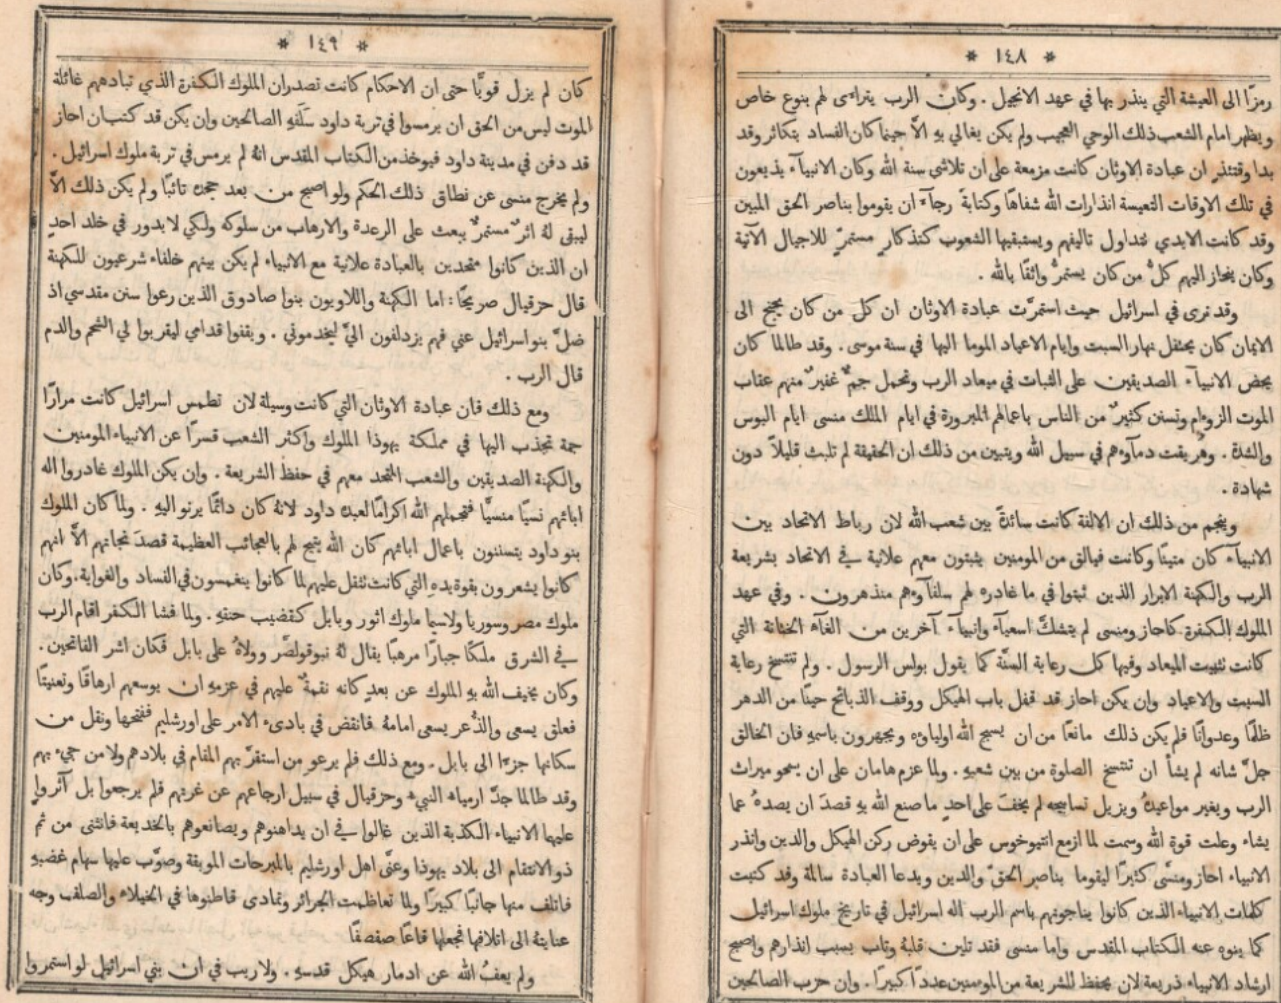 * ١٤٨ *
رمزًا الى العيشة التي ينذر بها في عهد الانجيل . وكان الرب يتراءى لهم بنوع خاص
ويظهر امام الشعب ذلك الوحي العجيب ولم يكن يغالي بهِ الاَّ حينما كان الفساد يتكاثر وقد
بدا وقتئذٍ ان عبادة الاوثان كانت مزمعة على ان تلاشي سنة الله وكان الانبيآء يذيعون
في تلك الاوقات التعيسة انذارات الله شفاهًا وكتابةً رجآء ان يقوموا بناصر الحق المبين
وقد كانت الايدي تتداول تاليفهم ويستبقيها الشعوب كتذكارٍ مستمرٍّ للاجيال الآتية
وكان ينحاز اليهم كلُّ من كان يستمرُّ واثقًا بالله .
وقد نرى في اسرائيل حيث استمرَّت عبادة الاوثان ان كل من كان يجنح الى
الايمان كان يحتفل بنهار السبت وايام الاعياد الموما اليها في سنة موسى . وقد طالما كان
يحض الانبيآء الصديقين على الثبات في ميعاد الرب وتحمل جمٌّ غفيرٌ منهم عقاب
الموت الزوءام وتسنن كثيرٌ من الناس باعمالهم المبرورة في ايام الملك منسى ايام البوس
والشدة . وهُريقت دمآوءهم في سبيل الله ويتبين من ذلك ان الحقيقة لم تلبث قليلاً دون
شهادة .
وينجم من ذلك ان الالفة كانت سائدةً بين شعب الله لان رباط الاتحاد بين
الانبيآء كان متينًا وكانت فيالق من المومنين يثبتون معهم علانية في الاتحاد بشريعة
الرب والكهنة الابرار الذين ثبتوا في ما غادره لهم سلفآوءهم منذهرون . وفي عهد
الملوك الكفرة كاحاز ومنسى لم يتشكَّ اسعيآء وانبيآء آخرين من الغآء الختانة التي
كانت تثبيت الميعاد وفيها كل رعاية السنَّة كما يقول بولس الرسول . ولم تنتسخ رعاية
السبت والاعياد وإن يكن احاز قد قفل باب الهيكل ووقف الذبائح حينًا من الدهر
ظلمًا وعدوانًا فلم يكن ذلك مانعًا من ان يسبح الله اولياوءه ويجهرون باسمهِ فان الخالق
جلَّ شانه لم يشأ ان تنتسخ الصلوة من بين شعبهِ . ولما عزم هامان على ان يمحو ميراث
الرب ويغير مواعيدهُ ويزيل تسابيحه لم يخفَ على احدٍ ما صنع الله بهِ قصدَ ان يصدهُ عما
يشاء وعلت قوة الله وسمت لما ازمع انتيوخوس على ان يقوض ركن الهيكل والدين وانذر
الانبياء احاز ومنسَّى كثيرًا ليقوما بناصر الحقّ والدين ويدعا العبادة سالمة وقد كتبت
كلمات الانبياء الذين كانوا يناجونهم باسم الرب اله اسرائيل في تاريخ ملوك اسرائيل
كما ينوه عنه الكتاب المقدس واما منسى فقد تلين قلبهُ وتاب بسبب انذارهم واصبح
ارشاد الانبياء ذريعة لان يحفظ للشريعة من المومنين عددًا كبيرًا . وان حزب الصالحين
* ١٤٩ *
كان لم يزل قويًّا حتى ان الاحكام كانت تصدر ان الملوك الكفرة الذي تبادهم غائلة
الموت ليس من الحق ان يرمسوا في تربة داود سَلَفهِ الصالحين وإن يكن قد كتب ان احاز
قد دفن في مدينة داود فيوخذ من الكتاب المقدس انهُ لم يرمس في تربة ملوك اسرائيل .
ولم يخرج منسى عن نطاق ذلك الحكم ولو اصبح من بعد جحده تائبًا ولم يكن ذلك الاَّ
ليبقى لهُ اثرٌ مستمرٌّ يبعث على الرعدة والارهاب من سلوكه ولكي لا يدور في خلد احدٍ
ان الذين كانوا متحدين بالعبادة علانية مع الانبياء لم يكن بينهم خلفاء شرعيون للكهنة
قال حزقيال صريحًا : اما الكهنة واللاويون بنوا صادوق الذين رعوا سنن مقدسي اذ
ضلَّ بنو اسرائيل عني فهم يزدلفون اليَّ ليخدموني . ويقفوا قدامي ليقربوا لي الشحم والدم
قال الرب .
ومع ذلك فان عبادة الاوثان التي كانت وسيلة لان تطمس اسرائيل كانت مرارًا
جمة تجذب اليها في مملكة يهوذا الملوك واكثر الشعب قسرًا عن الانبياء المومنين
والكهنة الصديقين والشعب المتحد معهم في حفظ الشريعة . وإن يكن الملوك غادروا اله
ابائهم نسيًا منسيًّا فتحملهم الله اكرامًا لعبده داود لانهُ كان دائمًا يرنو اليهِ . ولما كان الملوك
بنو داود يتسننون باعمال ابائهم كان الله يتيح لهم بالعجائب العظيمة قصدَ نجاتهم الاَّ انهم
كانوا يشعرون بقوة يدهِ التي كانت تثقل عليهم لما كانوا ينغمسون في الفساد والغواية . وكان
ملوك مصر وسوريا ولاسيما ملوك اثور وبابل كقضيب حنقهِ . ولما فشا الكفر اقام الرب
في الشرق ملكًا جبارًا مرهبًا يقال لهُ نبوقولصّر وولاهُ على بابل فكان اشر الفاتحين .
وكان يخيف الله بهِ الملوك عن بعدٍ كانه نقمةٌ عليهم في عزمهِ ان يوسعهم ارهاقًا وتعنيتًا
فعلق يسعى والذُّعر يسعى امامهُ فانقض في بادىء الامر على اورشليم ففتحها ونقل من
سكانها جزءًا الى بابل . ومع ذلك فلم يرعوِ من استقرَّ بهم المقام في بلادهم ولا من جيء بهم
وقد طالما جدَّ ارمياء النبيء وحزقيال في سبيل ارجاعهم عن غرتهم فلم يرجعوا بل آثروا
عليها الانبياء الكذبة الذين غالوا في ان يداهنوهم ويصانعوهم بالخديعة فانثنى من ثم
ذو الانتقام الى بلاد يهوذا وعنَّى اهل اورشليم بالمبرحات الموبقة وصوَّب عليها سهام غضبهِ
فاتلف منها جانبًا كبيرًا ولما تعاظمت الجرائر وتمادى قاطنوها في الخيلاء والصلف وجه
عنايتهُ الى اتلافها فجعلها قاعًا صفصفًا
ولم يعفُ الله عن ادمار هيكل قدسهِ . ولا ريب في ان بني اسرائيل لو استمروا